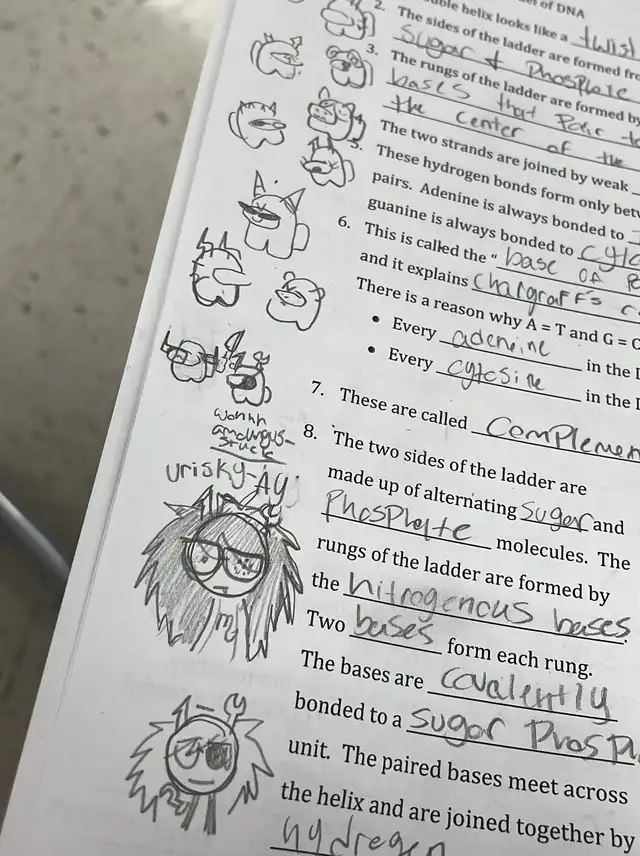 del of DNA
uble helix looks like a twist
2. The sides of the ladder are formed fro
Sugar & Phosphate
3. The rungs of the ladder are formed by
bases that Pair to
the center of the
The two strands are joined by weak
5. These hydrogen bonds form only betw
pairs. Adenine is always bonded to
guanine is always bonded to cyto
6. This is called the "base of Pa
and it explains Chargraff's r
There is a reason why A = T and G = C
• Every adenine in the D
• Every cytosine in the D
7. These are called Complemen
8. The two sides of the ladder are
made up of alternating sugar and
Phosphate molecules. The
rungs of the ladder are formed by
the nitrogenous bases.
Two bases form each rung.
The bases are covalently
bonded to a sugar Phosph
unit. The paired bases meet across
the helix and are joined together by
hydrogen